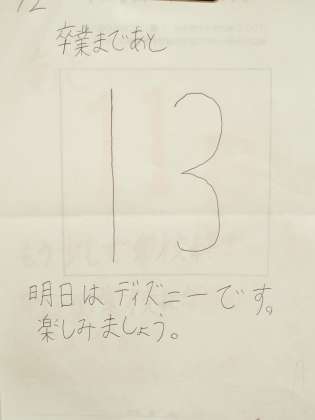 卒業まであと
13
明日はディズニーです。
楽しみましょう。